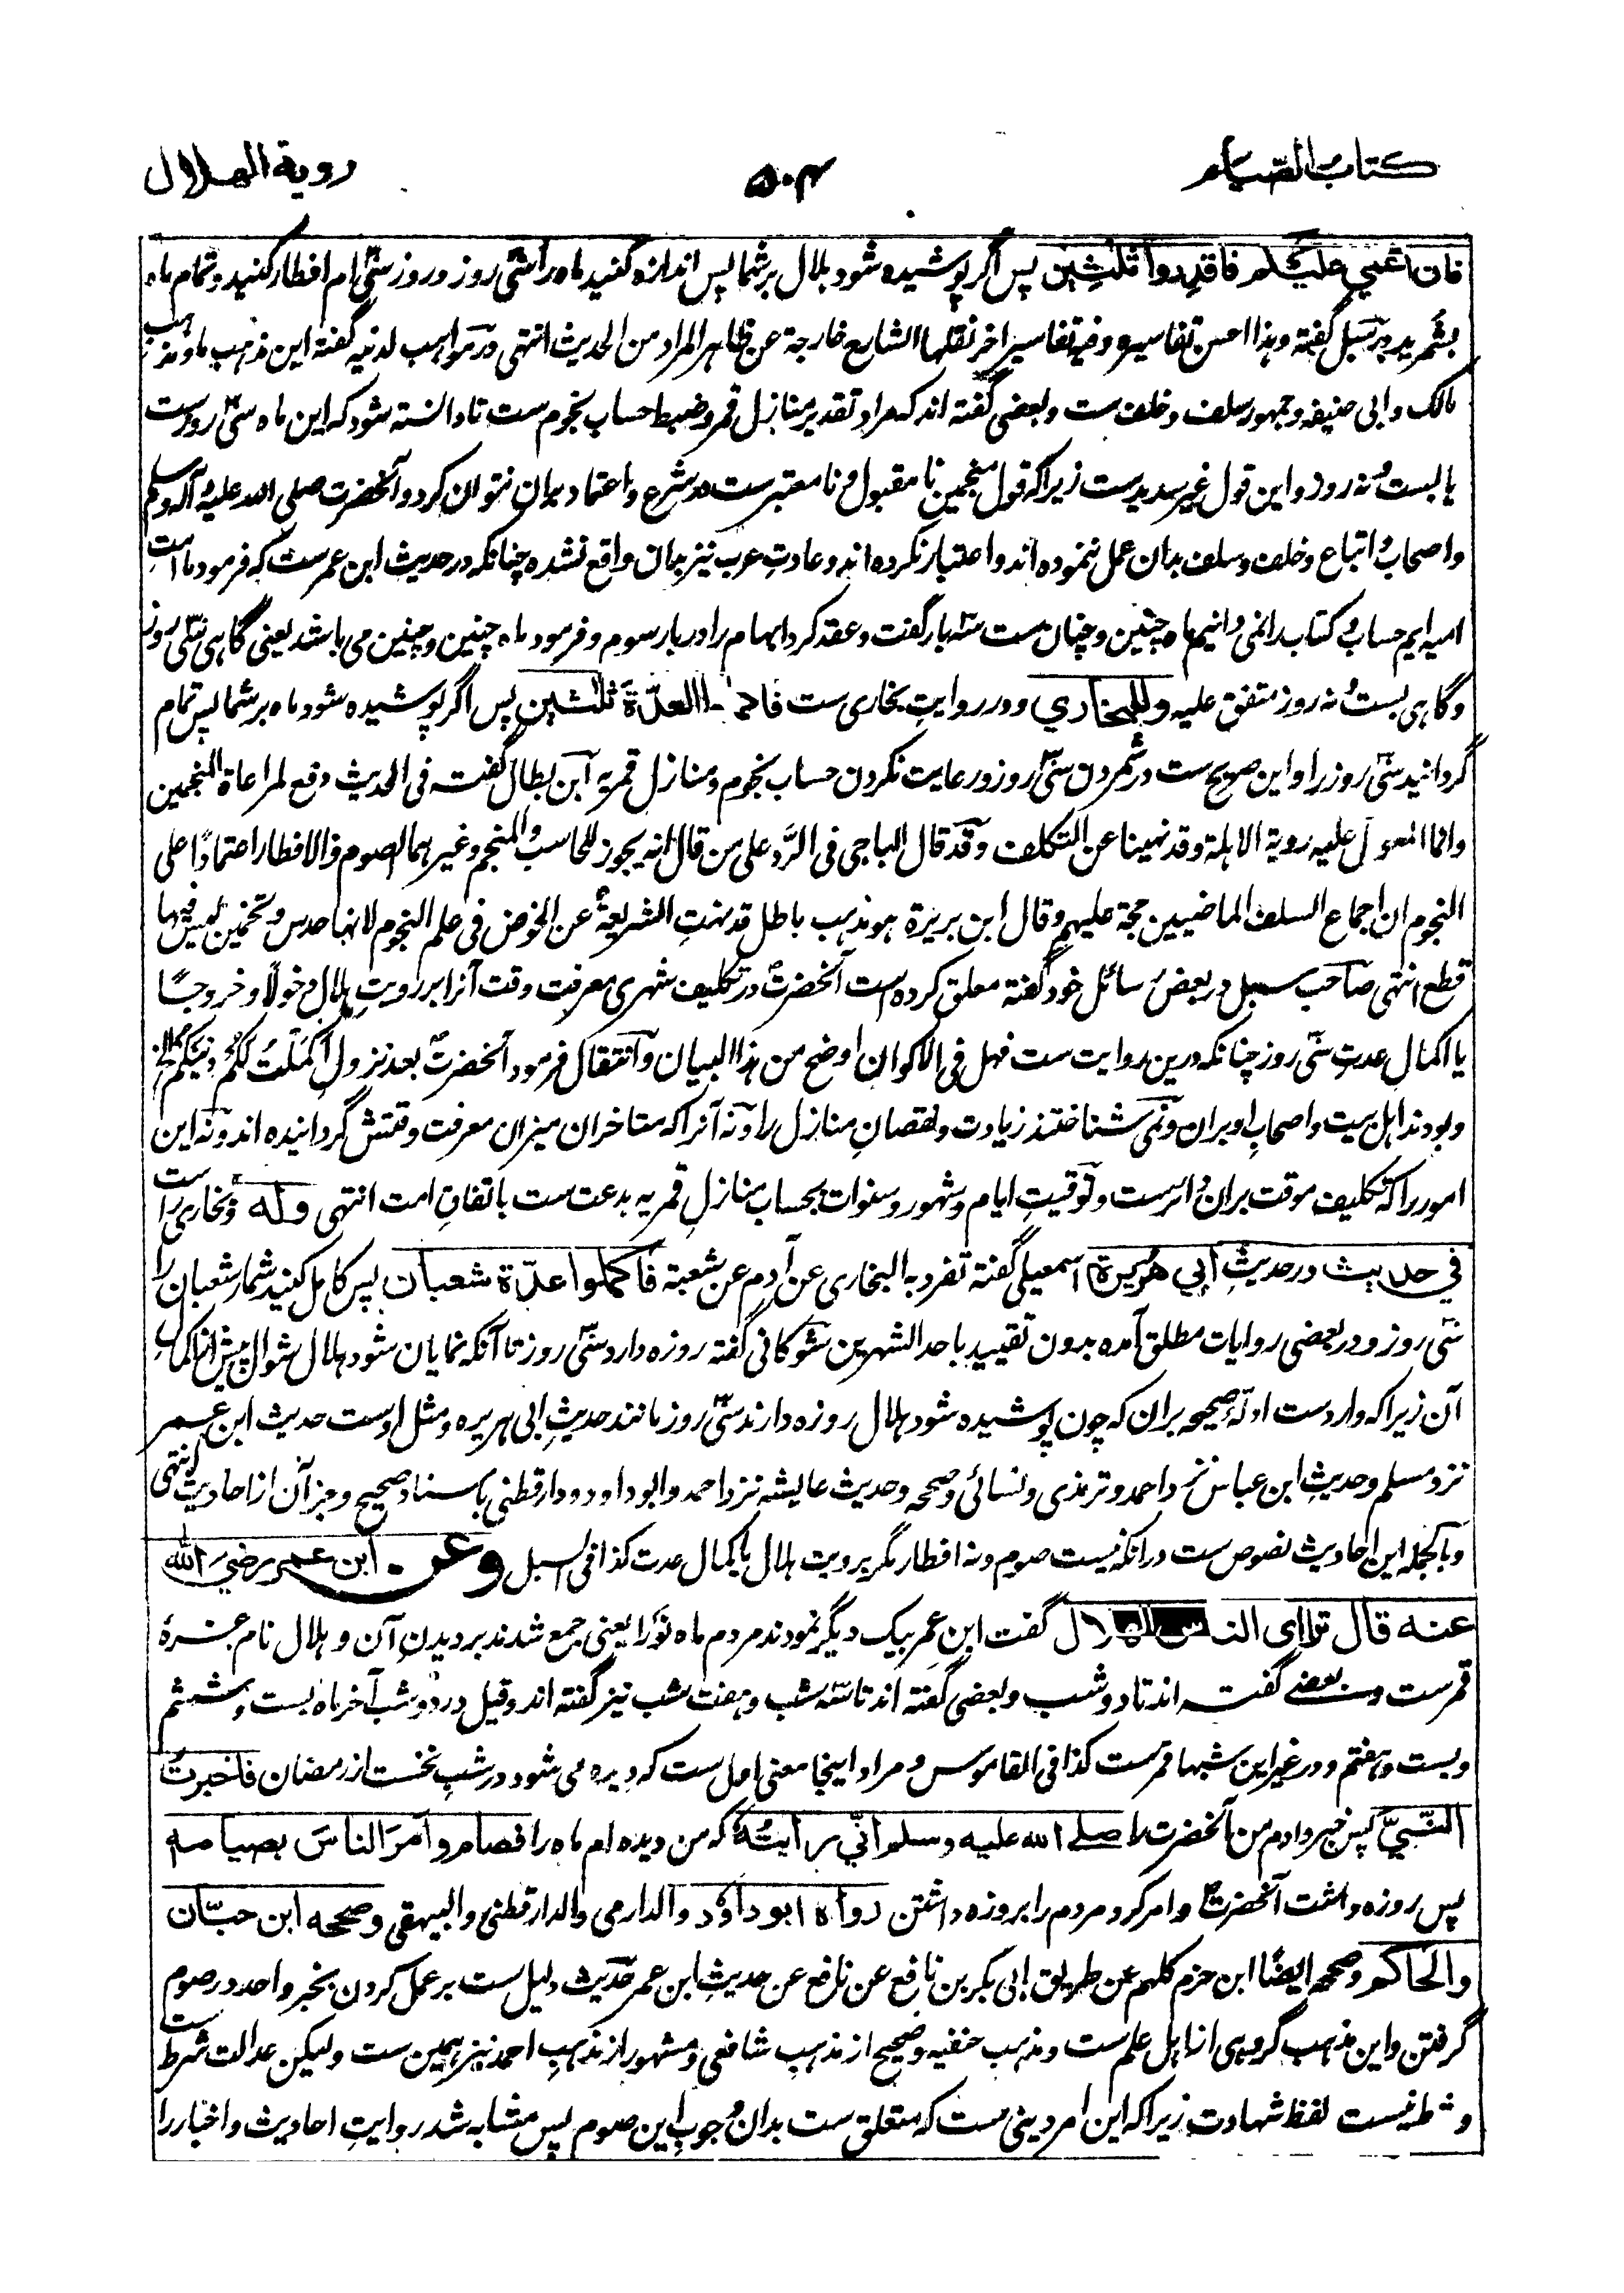 كتاب الصيام
۵۰۴
روية الهلال
فان اغمي عليكم فاقدروا ثلثين پس اگر پوشیده شود ہلال بر شما پس اندازہ کنید ماہ را سی روز و روز سی ام افطار کنید و تمام ماہ
بشمرید در سبل گفتہ وہذا احسن تفاسیرہ وفیہ تفاسیر اخر نقلہا الشارح خارجة عن ظاہر المراد من الحدیث انتہی و در مواہب لدنیہ گفتہ این مذہب ما و مذہب
مالک و ابی حنیفہ و جمہور سلف و خلف ست و بعضی گفتہ اند کہ مراد تقدیر منازل قمر و ضبط حساب نجوم ست تا دانستہ شود کہ این ماہ سی روزست
یا بست و نہ روز و این قول غیر سدید ست زیرا کہ قول منجمین نا مقبول و نا معتبر ست در شرع و اعتماد بران نتوان کرد و آنحضرت صلی اللہ علیہ و آلہ و سلم
و اصحاب و اتباع و خلف و سلف بدان عمل ننمودہ اند و اعتبار نکردہ اند و عادتِ عرب نیز بدان واقع نشدہ چنانکہ در حدیث ابن عمر ست کہ فرمود ما امتِ
امیہ ایم حساب و کتاب را نمی دانیم ماہ چنین و چنان ست سہ بار گفت و عقد کرد ابہام را در بار سوم و فرمود ماہ چنین و چنین می باشد یعنی گاہی سی روز
و گاہی بست و نہ روز متفق علیہ وللبخاري و در روایتِ بخاری ست العدّة ثلثين پس اگر پوشیدہ شود ماہ بر شما پس تمام
گردانید سی روز را و این صریح ست در شمردن سی روز و رعایت نکردن حساب نجوم و منازل قمریہ ابن بطال گفت فی الحدیث دفع لمراعاة المنجمین
وانما المعول علیہ رویة الاہلة وقد نہینا عن التکلف وقد قال الباجی فی الرد علی من قال انہ یجوز للحاسب والمنجم وغیرہما الصوم والافطار اعتمادًا علی
النجوم ان اجماع السلف الماضیین حجة علیہم وقال ابن بریزة ہو مذہب باطل قد نہتِ الشریعة عن الخوض فی علم النجوم لانہا حدس وتخمین لیس فیہا
قطع انتہی صاحب سبل در بعض رسائل خود گفتہ معلق کردہ است آنحضرت در تکلیف شہری معرفت وقت آنرا بر رویتِ ہلال دخولاً و خروجًا
یا اکمال عدتِ سی روز چنانکہ درین روایت ست فہل فی الاکوان اوضح من ہذا البیان و انتقال فرمود آنحضرت بعد نزولِ اکملت لکم دینکم الخ
و بودند اہل بیت و اصحابِ او بران و نمی شناختند زیادت و نقصانِ منازل را و نہ آنرا کہ متاخران میزان معرفت وقتش گردانیدہ اند و نہ این
امور را کہ تکلیف موقت بران دائرست و توقیتِ ایام و شہور و سنوات بحساب منازلِ قمریہ بدعت ست باتفاقِ امت انتہی وله و بخاری راست
في حديث در حدیثِ أبي هريرة اسمعیلی گفتہ تفرد بہ البخاری عن آدم عن شعبة فأكملوا عدّة شعبان پس کامل کنید شمار شعبان را
سی روز و در بعضی روایات مطلق آمدہ بدون تقیید باحد الشہرین شوکانی گفتہ روزہ دارد سی روز تا آنکہ نمایان شود ہلال شوال پیش از اکمالِ
آن زیرا کہ وارد ست ادلۂ صحیحہ بران کہ چون پوشیدہ شود ہلال روزہ دارند سی روز مانند حدیثِ ابی ہریرہ و مثل اوست حدیث ابن عمر
نزد مسلم و حدیثِ ابن عباس نزد احمد و ترمذی و نسائی و صححہ و حدیث عایشہ نزد احمد و ابو داود و دارقطنی باسناد صحیح و جز آن از احادیث انتہی
و بالجملہ این احادیث نصوص ست در آنکہ نیست صوم و نہ افطار مگر برویت ہلال یا کمال عدت کذا فی السبل وعن ابن عمر رضي الله
عنه قال ترااى الناس الهلال گفت ابن عمر بیک دیگر نمودند مردم ماہ نو را یعنی جمع شدند بر دیدنِ آن و ہلال نام غرۂ
قمر ست و بعضے گفتہ اند تا دو شب و بعضی گفتہ اند تا سہ شب و ہفت شب نیز گفتہ اند و قیل در دو شب آخر ماہ بست و ششم
و بست و ہفتم و در غیر این شبہا قمرست کذا فی القاموس و مراد اینجا معنی اول ست کہ دیدہ می شود در شبِ نخست از رمضان فاخبرتُ
النّبيَّ پس خبر دادم من آنحضرت را صلى الله عليه وسلم أنّي رأيتُه کہ من دیدہ ام ماہ را فصام وأمرَ الناسَ بصيامه
پس روزہ داشت آنحضرت و امر کرد مردم را بروزہ داشتن رواه ابو داؤد والدارمی والدارقطنی والبیہقی وصححه ابن حبّان
والحاكم وصححہ ایضًا ابن حزم کلہم عن طریق ابی بکر بن نافع عن نافع عن حدیثِ ابن عمر حدیث دلیل ست بر عمل کردن بخبر واحد در صوم
گرفتن و این مذہب گروہی از اہل علم ست و مذہب حنفیہ و صحیح از مذہب شافعی و مشہور از مذہبِ احمد نیز ہمین ست ولیکن عدالت شرط ست
و شرط نیست لفظ شہادت زیرا کہ این امر دینی ست کہ متعلق ست بدان وجوبِ این صوم پس مشابہ شد روایتِ احادیث و اخبار را